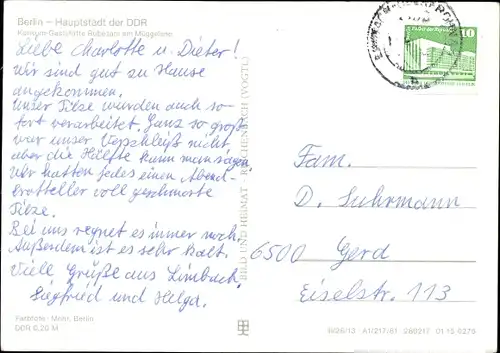 Berlin – Hauptstadt der DDR
Konsum-Gaststätte Rübezahl am Müggelsee
Liebe Charlotte u. Dieter!
Wir sind gut zu Hause
angekommen.
Unser Pilze wurden auch so-
fort verarbeitet. Ganz so groß
war unser Verschleiß nicht,
aber die Hälfte kann man sagen.
Wir hatten jedes einen Abend-
brotteller voll geschmorte
Pilze.
Bei uns regnet es immer noch.
Außerdem ist es sehr kalt.
Viele Grüße aus Limbach,
Siegfried und Helga.
Farbfoto: Mohr, Berlin
DDR 0,20 M
BILD UND HEIMAT REICHENBACH (VOGTL)
10
Fam.
D. Suhrmann
6500 Gerd
Eiselstr. 113
A1/217/81 280217 01 15 0276